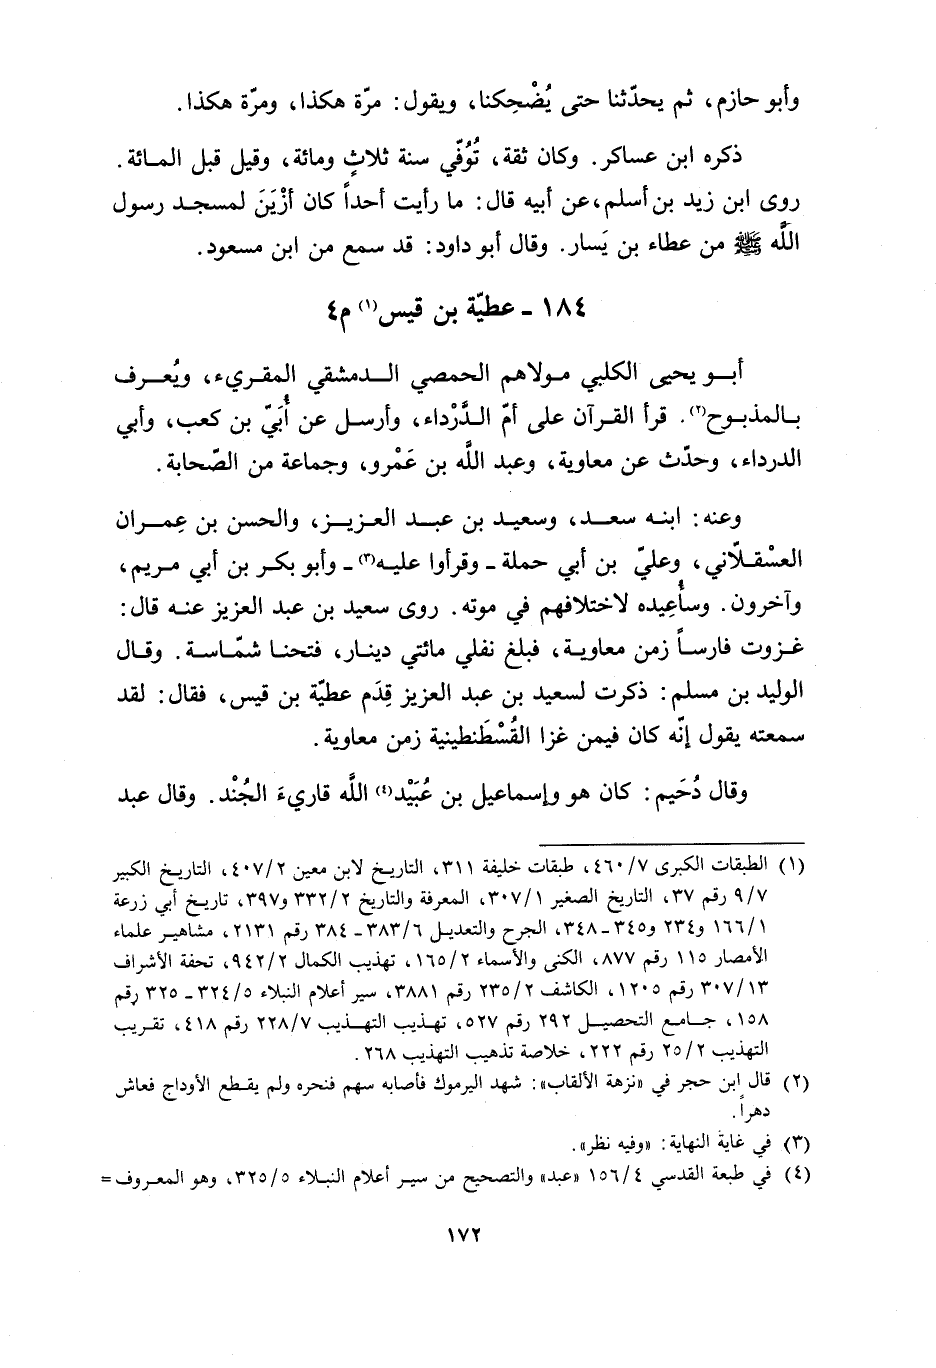 وأبو حازم، ثم يحدّثنا حتى يُضْحِكنا، ويقول: مرّة هكذا، ومرّة هكذا.
ذكره ابن عساكر. وكان ثقة، تُوُفّي سنة ثلاثٍ ومائة، وقيل قبل المائة.
روى ابن زيد بن أسلم، عن أبيه قال: ما رأيت أحداً كان أزْيَنَ لمسجد رسول
اللَّه ﷺ من عطاء بن يَسار. وقال أبو داود: قد سمع من ابن مسعود.
١٨٤ - عطيّة بن قيس(١) م٤
أبو يحيى الكلبي مولاهم الحمصي الدمشقي المقريء، ويُعرف
بالمذبوح(٢). قرأ القرآن على أمّ الدَّرْداء، وأرسل عن أُبَيّ بن كعب، وأبي
الدرداء، وحدّث عن معاوية، وعبد اللَّه بن عَمْرو، وجماعة من الصّحابة.
وعنه: ابنه سعد، وسعيد بن عبد العزيز، والحسن بن عِمران
العسْقلّاني، وعليّ بن أبي حملة - وقرأوا عليه(٣) - وأبو بكر بن أبي مريم،
وآخرون. وسأُعِيده لاختلافهم في موته. روى سعيد بن عبد العزيز عنه قال:
غزوت فارساً زمن معاوية، فبلغ نفلي مائتي دينار، فتحنا شمّاسة. وقال
الوليد بن مسلم: ذكرت لسعيد بن عبد العزيز قِدَم عطيّة بن قيس، فقال: لقد
سمعته يقول إنّه كان فيمن غزا القُسْطَنطينية زمن معاوية.
وقال دُحَيم: كان هو وإسماعيل بن عُبَيْد(٤) اللَّه قاريءَ الجُنْد. وقال عبد
(١) الطبقات الكبرى ٤٦٠/٧، طبقات خليفة ٣١١، التاريخ لابن معين ٤٠٧/٢، التاريخ الكبير
٩/٧ رقم ٣٧، التاريخ الصغير ٣٠٧/١، المعرفة والتاريخ ٣٣٢/٢ و٣٩٧، تاريخ أبي زرعة
١٦٦/١ و٢٣٤ و٣٤٥ - ٣٤٨، الجرح والتعديل ٣٨٣/٦ - ٣٨٤ رقم ٢١٣١، مشاهير علماء
الأمصار ١١٥ رقم ٨٧٧، الكنى والأسماء ١٦٥/٢، تهذيب الكمال ٩٤٢/٢، تحفة الأشراف
٣٠٧/١٣ رقم ١٢٠٥، الكاشف ٢٣٥/٢ رقم ٣٨٨١، سير أعلام النبلاء ٣٢٤/٥ - ٣٢٥ رقم
١٥٨، جامع التحصيل ٢٩٢ رقم ٥٢٧، تهذيب التهذيب ٢٢٨/٧ رقم ٤١٨، تقريب
التهذيب ٢٥/٢ رقم ٢٢٢، خلاصة تذهيب التهذيب ٢٦٨.
(٢) قال ابن حجر في «نزهة الألقاب»: شهد اليرموك فأصابه سهم فنحره ولم يقطع الأوداج فعاش
دهراً.
(٣) في غاية النهاية: «وفيه نظر».
(٤) في طبعة القدسي ١٥٦/٤ «عبد» والتصحيح من سير أعلام النبلاء ٣٢٥/٥، وهو المعروف =
١٧٢